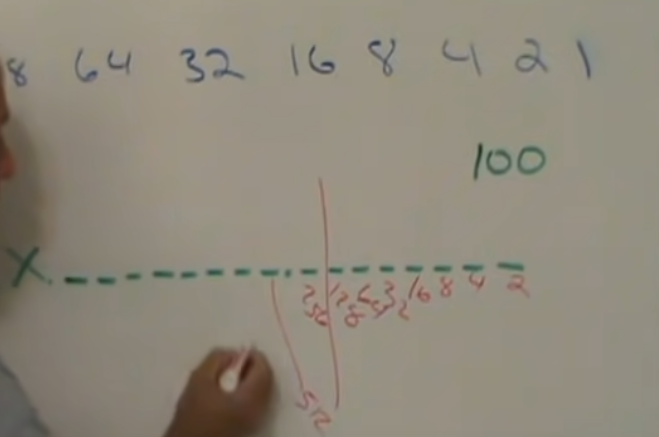 8 64 32 16 8 4 2 1
100
X.
256 128 64 32 16 8 4 2
512